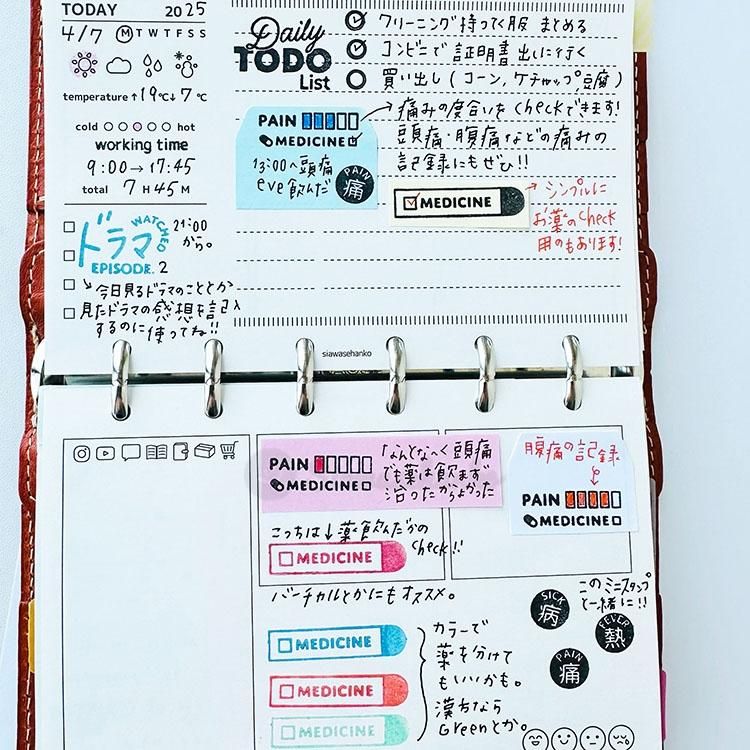 TODAY 2025
4/7 M T W T F S S
temperature ↑ 19℃ ↓ 7℃
cold ○○○○○ hot
working time
9:00→17:45
total 7 H 45 M
Daily
TODO
List
クリーニング持ってく服 まとめる
コンビニで証明書出しに行く
買い出し(コーン、ケチャップ、豆腐)
PAIN
MEDICINE
13:00へ頭痛
eve飲んだ
PAIN
痛
→痛みの度合いをcheckできます!
頭痛・腹痛などの痛みの
記録にもぜひ!!
MEDICINE
→シンプルに
お薬のcheck
用のもあります!
ドラマ
WATCHED
EPISODE. 2
21:00
から。
↳今日見るドラマのこととか
見たドラマの感想を記入
するのに使ってね!!
siawasehanko
PAIN
MEDICINE
なんとな〜く頭痛
でも薬は飲まず
治ったからよかった
腹痛の記録
PAIN
MEDICINE
こっちは↓薬飲んだかの
check!!
MEDICINE
バーチカルとかにもオススメ。
MEDICINE
MEDICINE
MEDICINE
カラーで
薬を分けて
もいいかも。
漢方なら
Greenとか。
このミニスタンプ
と一緒に!!
SICK
病
FEVER
熱
PAIN
痛